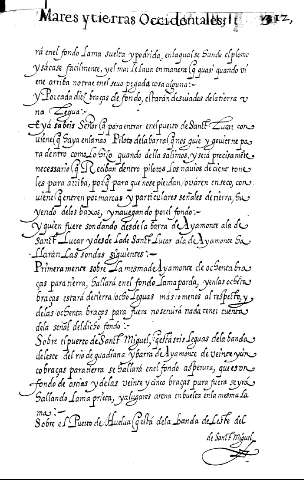 Mares y tierras Occidentales, It 312,
rá en el fondo Lama suelta y podrido, en la qual se hunde el plomo
y sácase facilmente, y el mar se laua en manera q̃ quasi quando vi
ene arriba no trae en el seuo pegada cosa alguna:
y Por cada diez braças de fondo, estarán desuiados de la tierra v
na Legua:
E ya sabeis Señor q̃ para entrar en el puerto de Sant Lucar con
uiene q̃ haya en la nao Piloto de la barra q̃ nos guie y gouierne pa
ra dentro como lo hizo quando della salimos, y será precisamẽte
necessario q̃ Reciban dentro pilotos Los nauios de ciẽt tone
les para arriba, porq̃ para que no se pierdan, o varen en seco, con
uiene q̃ entren por marcas y particulares señales de tierra, hu
yendo de los baxos, y nauegando por el fondo:
y Quien fuere sondando desde la barra de Ayamonte a la de
Sant Lucar y desde la de Sant Lucar a la de Ayamonte ha
Llarán Las sondas siguientes:
Primeramente sobre La mesma de Ayamonte de ochenta bra
ças para tierra, hallará en el fondo Lama parda, y en las ochẽta
braças estará de tierra ocho Leguas mas o menos al respetto, y
de las ochenta braças para fuera no seruirá nada tener cuenta
de la señal del dicho fondo:
Sobre el puerto de Sant Miguel, q̃ está seis Leguas de la banda
del este del rio de guadiana y barra de Ayamonte de veinte y cin
co braças para tierra se hallará en el fondo aspereza, que es vn
fondo de ostias, y de las veinte y cinco braças para fuera se yrá
hallando Lama prieta, y a lugares arena en buelta en la mesma La
ma:
Sobre el Puerto de Huelua q̃ está de la banda de Leste del
de Sant Miguel